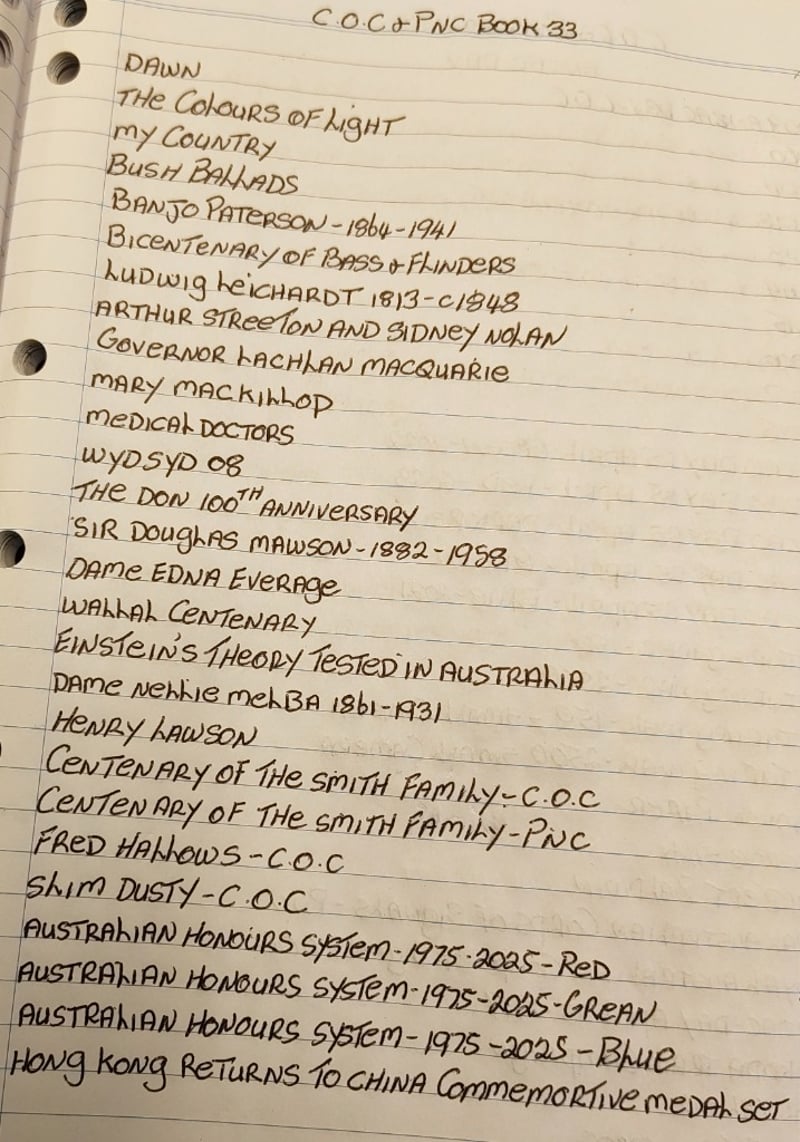 C.O.C & PNC BOOK 33
DAWN
THE COLOURS OF LIGHT
MY COUNTRY
BUSH BALLADS
BANJO PATERSON - 1864 - 1941
BICENTENARY OF BASS & FLINDERS
LUDWIG LEICHARDT 1813 - C1848
ARTHUR STREETON AND SIDNEY NOLAN
GOVERNOR LACHLAN MACQUARIE
MARY MACKILLOP
MEDICAL DOCTORS
WYDSYD 08
THE DON 100TH ANNIVERSARY
SIR DOUGLAS MAWSON - 1882 - 1958
DAME EDNA EVERAGE
WALLAL CENTENARY
EINSTEIN'S THEORY TESTED IN AUSTRALIA
DAME NELLIE MELBA 1861 - 1931
HENRY LAWSON
CENTENARY OF THE SMITH FAMILY - C.O.C
CENTENARY OF THE SMITH FAMILY - PNC
FRED HALLOWS - C.O.C
SLIM DUSTY - C.O.C
AUSTRALIAN HONOURS SYSTEM - 1975 - 2025 - RED
AUSTRALIAN HONOURS SYSTEM - 1975 - 2025 - GREAN
AUSTRALIAN HONOURS SYSTEM - 1975 - 2025 - BLUE
HONG KONG RETURNS TO CHINA COMMEMORTIVE MEDAL SET